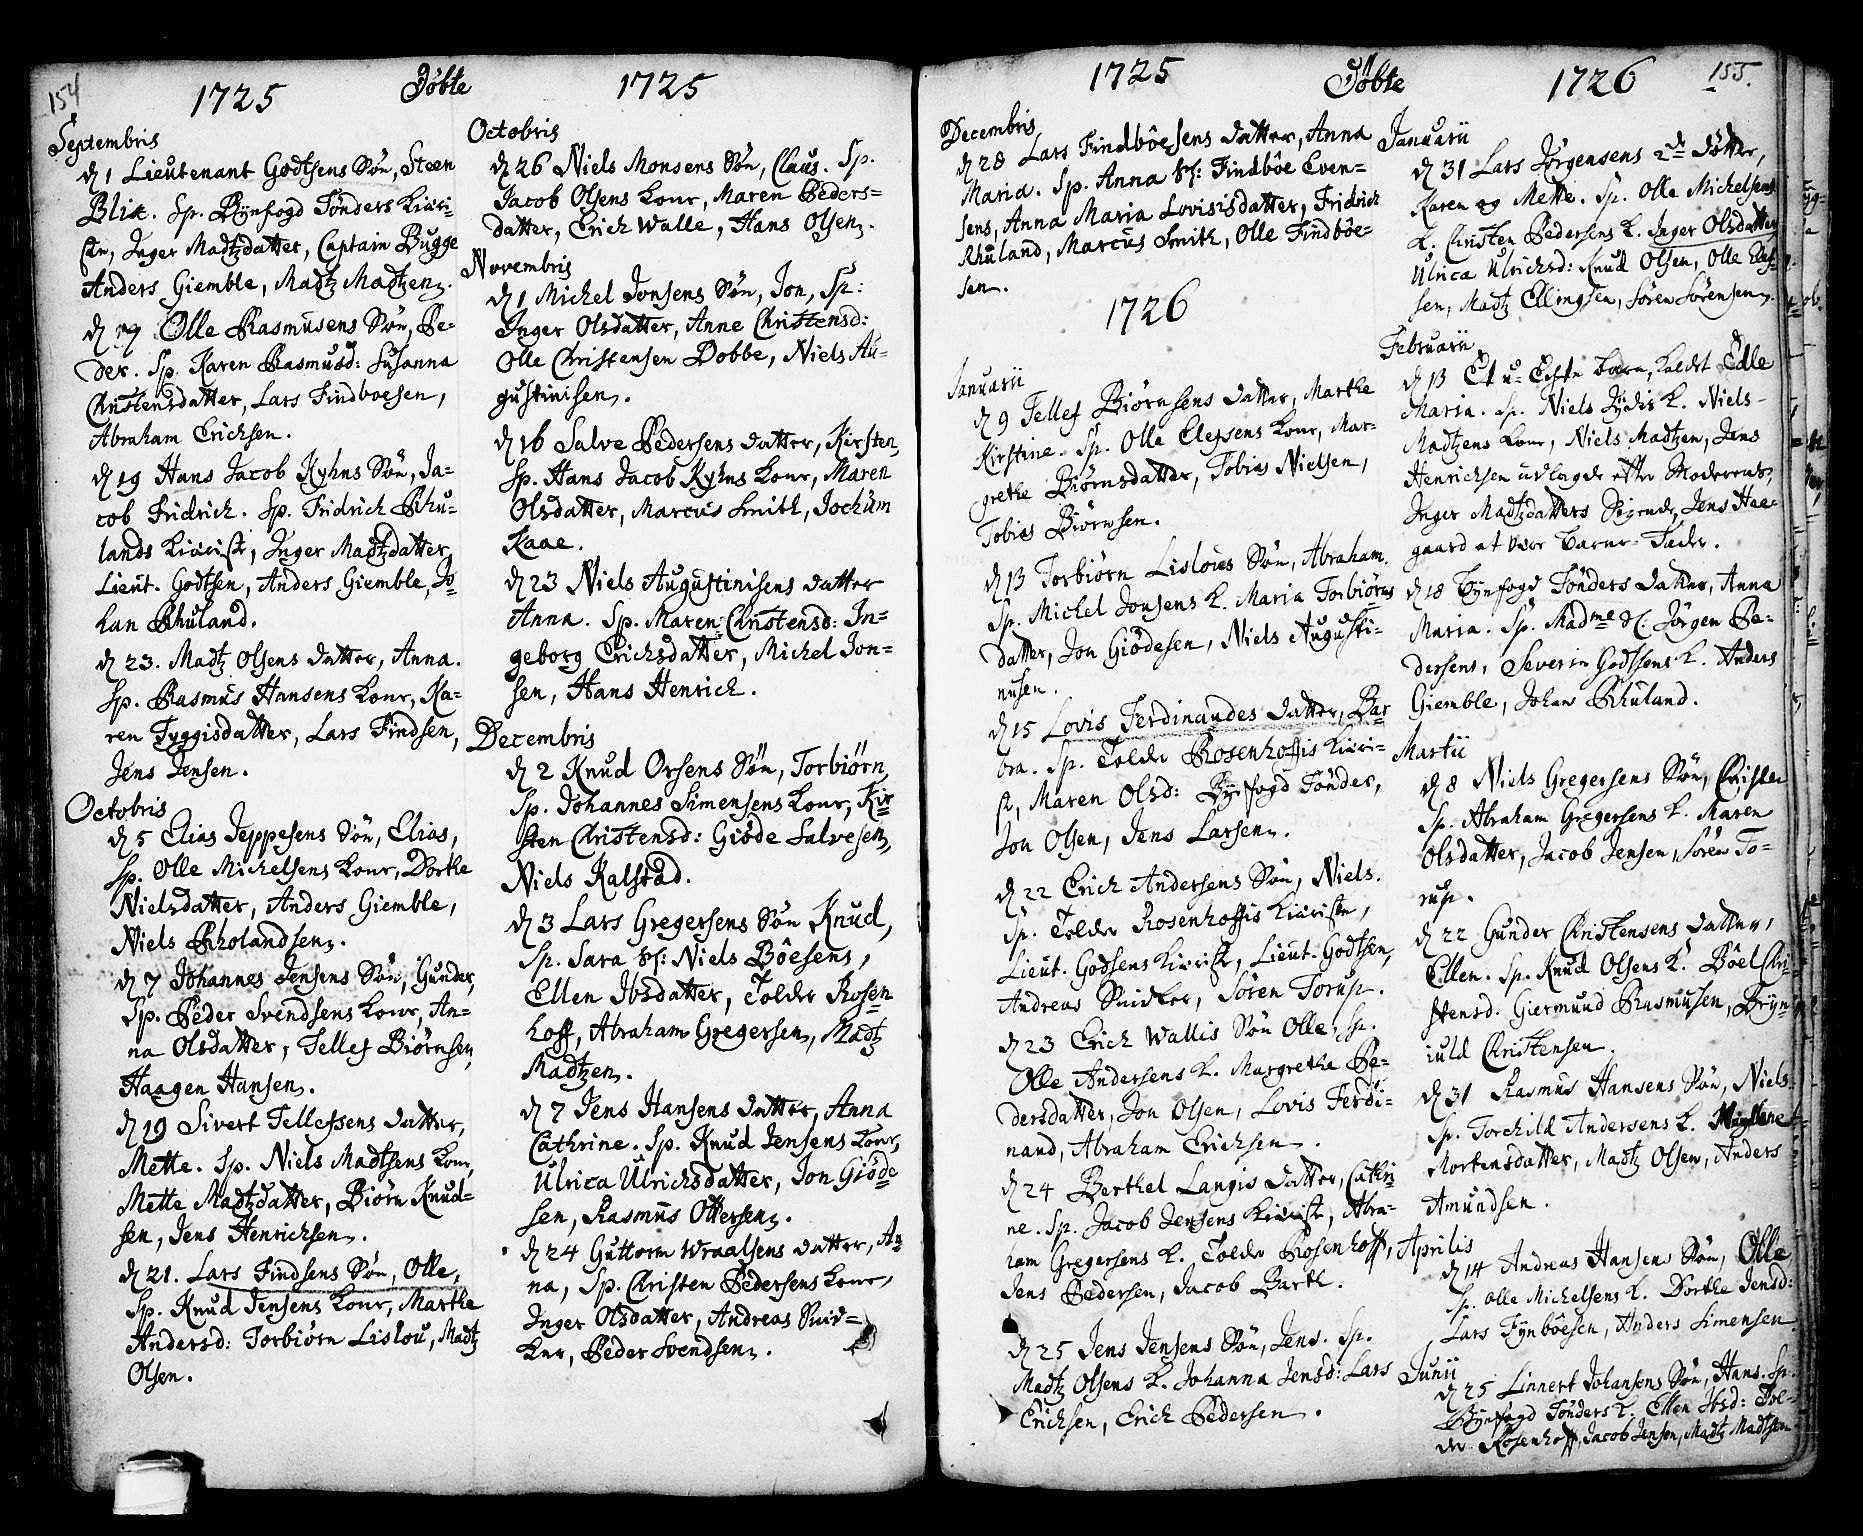 154
1725 Döbte 1725
Septembris
d 1 Lieutenant Godtsens Søn, Steen
Blix. Sp. Byefogd Tønders Kieri-
ste, Inger Madtzdatter, Captain Bugge
Anders Giemble, Madtz Madtzen.
d 17 Olle Rasmusens Søn, Pe-
der. Sp. Karen Rasmusd: Susanna
Christensdatter, Lars Findboesen,
Abraham Erichsen.
d 19 Hans Jacob Kyhns Søn, Ja-
cob Fridrich. Sp. Fridrich Rhu-
lands Kieriste, Inger Madtzdatter
Lieut. Godtsen, Anders Giemble, Jo-
han Rhuland.
d 23. Madtz Olsens datter, Anna.
Sp. Rasmus Hansens Konr, Ka-
ren Tyggisdatter, Lars Findsen,
Jens Jensen.
Octobris
d 5 Elias Jeppesens Søn, Elias,
Sp. Olle Michelsens Konr, Dorthe
Nielsdatter, Anders Giemble,
Niels Rholandsen.
d 7 Johannes Jensens Søn, Gunder,
Sp. Peder Svendsens Konr, An-
na Olsdatter, Tellef Biørnsen,
Haagen Hansen.
d 19 Sivert Tellefsens datter,
Mette. Sp. Niels Madtsens Konr,
Mette Madtzdatter, Biørn Knud-
sen, Jens Henrichsen.
d 21. Lars Findsens Søn, Olle,
Sp. Knud Jensens Konr, Marthe
Andersd: Torbiørn Lislou, Madtz
Olsen.
Octobris
d 26 Niels Monsens Søn, Claus. Sp.
Jacob Olsens Konr, Maren Peders-
datter, Erich Walle, Hans Olsen.
Novembris
d 1 Michel Jonsens Søn, Jon, Sp:
Inger Olsdatter, Anne Christensd:
Olle Christensen Dobbe, Niels Au-
gustinisen.
d 16 Salve Pedersens datter, Kirsten,
Sp. Hans Jacob Kyhns Konr, Maren
Olsdatter, Marcus Smith, Jochum
Kaae.
d 23 Niels Augustinisens datter
Anna. Sp. Maren Christensd: In-
geborg Erichsdatter, Michel Jon-
sen, Hans Henrich.
Decembris
d 2 Knud Orsens Søn, Torbiørn,
Sp. Johannes Simensens Konr, Kir-
sten Christensd: Giøde Salvesen,
Niels Kalstad.
d 3 Lars Gregersens Søn Knud,
Sp. Sara Sl: Niels Böesens,
Ellen Ibsdatter, Tolder Rosen
hoff, Abraham Gregersen, Madtz
Madtzen.
d 7 Jens Hansens datter, Anna
Cathrine. Sp. Knud Jensens Konr,
Ulrica Ulrichsdatter, Jon Giøde
sen, Rasmus Ottersen.
d 24 Guttorm Wraalsens datter, An
na, Sp. Christen Pedersens Konr,
Inger Olsdatter, Andreas Snid-
ker, Peder Svendsen.
1725 Döbte 1726 155.
Decembris
d 28 Lars Findböesens datter, Anna
Maria. Sp. Anna Sl: Findböe Even-
sens, Anna Maria Lovisisdatter, Fridrich
Rhuland, Marcus Smith, Olle Findböe-
sen.
1726
Januarii
d 9 Tellef Biørnsens datter, Marthe
Kirstine. Sp. Olle Elefsens Konr, Mar-
grethe Biørnsdatter, Tobias Nielsen,
Tobias Biørnsen.
d 13 Torbiørn Lislous Søn, Abraham.
Sp. Michel Jonsens K. Maria Torbiørns
datter, Jon Giödesen, Niels Augusti-
nusen.
d 15 Lovis Ferdinandes datter, Bar
bra. Sp. Tolder Rosenhoffis Kieri-
ste, Maren Olsd: Byefogd Tönder,
Jon Olsen, Jens Larsen.
d 22 Erich Andersens Søn, Niels.
Sp. Tolder Rosenhoffis Kieriste,
Lieut. Godsens Kieriste, Lieut. Godtsen,
Andreas Snidker, Sören Torup.
d 23 Erich Wallis Søn Olle, Sp.
Olle Andersens K. Margrethe Pe-
dersdatter, Jon Olsen, Lovis Ferdi-
nand, Abraham Erichsen.
d 24 Berthel Langis datter, Cathri
ne. Sp. Jacob Jensens Kieriste, Abra-
ham Gregersens K. Tolder Rosenhoff,
Jens Pedersen, Jacob Barth.
d 25 Jens Jensens Søn, Jens. Sp.
Madtz Olsens K. Johanna Jensd: Lars
Erichsen, Erich Pedersen.
Januarii
d 31 Lars Jörgensens 2de døttre,
Karen og Mette. Sp. Olle Michelsens
K. Christen Pedersens K. Inger Olsdatter
Ulrica Ulrichsd: Knud Olsen, Olle Elef-
sen, Madtz Ellingsen, Sören Sörensen.
Februarii
d 13 Et u-Echte barn, kaldet Edle
Maria. Sp. Niels Jydes K. Niels
Madtzens Konr, Niels Madtzen, Jens
Henrichsen udlagde efter Moderens,
Inger Madtzdatters Sigende, Jens Hae-
gaard at vær Barne-Fader.
d 18 Byefogd Tönders datter, Anna
Maria. Sp. Madme Sl. Jörgen Pe-
dersens, Severin Godtsens K. Anders
Giemble, Johan Rhuland.
Martii
d 8 Niels Gregersens Søn, Christen
Sp. Abraham Gregersens K. Maren
Olsdatter, Jacob Jensen, Sören To-
rup.
d 22 Gunder Christensens datter,
Ellen. Sp. Knud Olsens K. Böel Chri-
stensd. Giermund Rasmusen, Bryn-
iuld Christensen.
d 31 Rasmus Hansens Søn, Niels.
Sp. Torchild Andersens K.
Mortensdatter, Madtz Olsen, Anders
Amundsen.
Aprilis
d 14 Andreas Hansens Søn, Olle
Sp. Olle Michelsens K. Dorthe Jensd:
Lars Fynböesen, Anders Simensen
Junii
d 25 Linnert Johansens Søn, Hans. Sp.
Byefogd Tönders K. Ellen Ibsd: Tol-
der Rosenhoff, Jacob Jensen, Madtz Madtsen